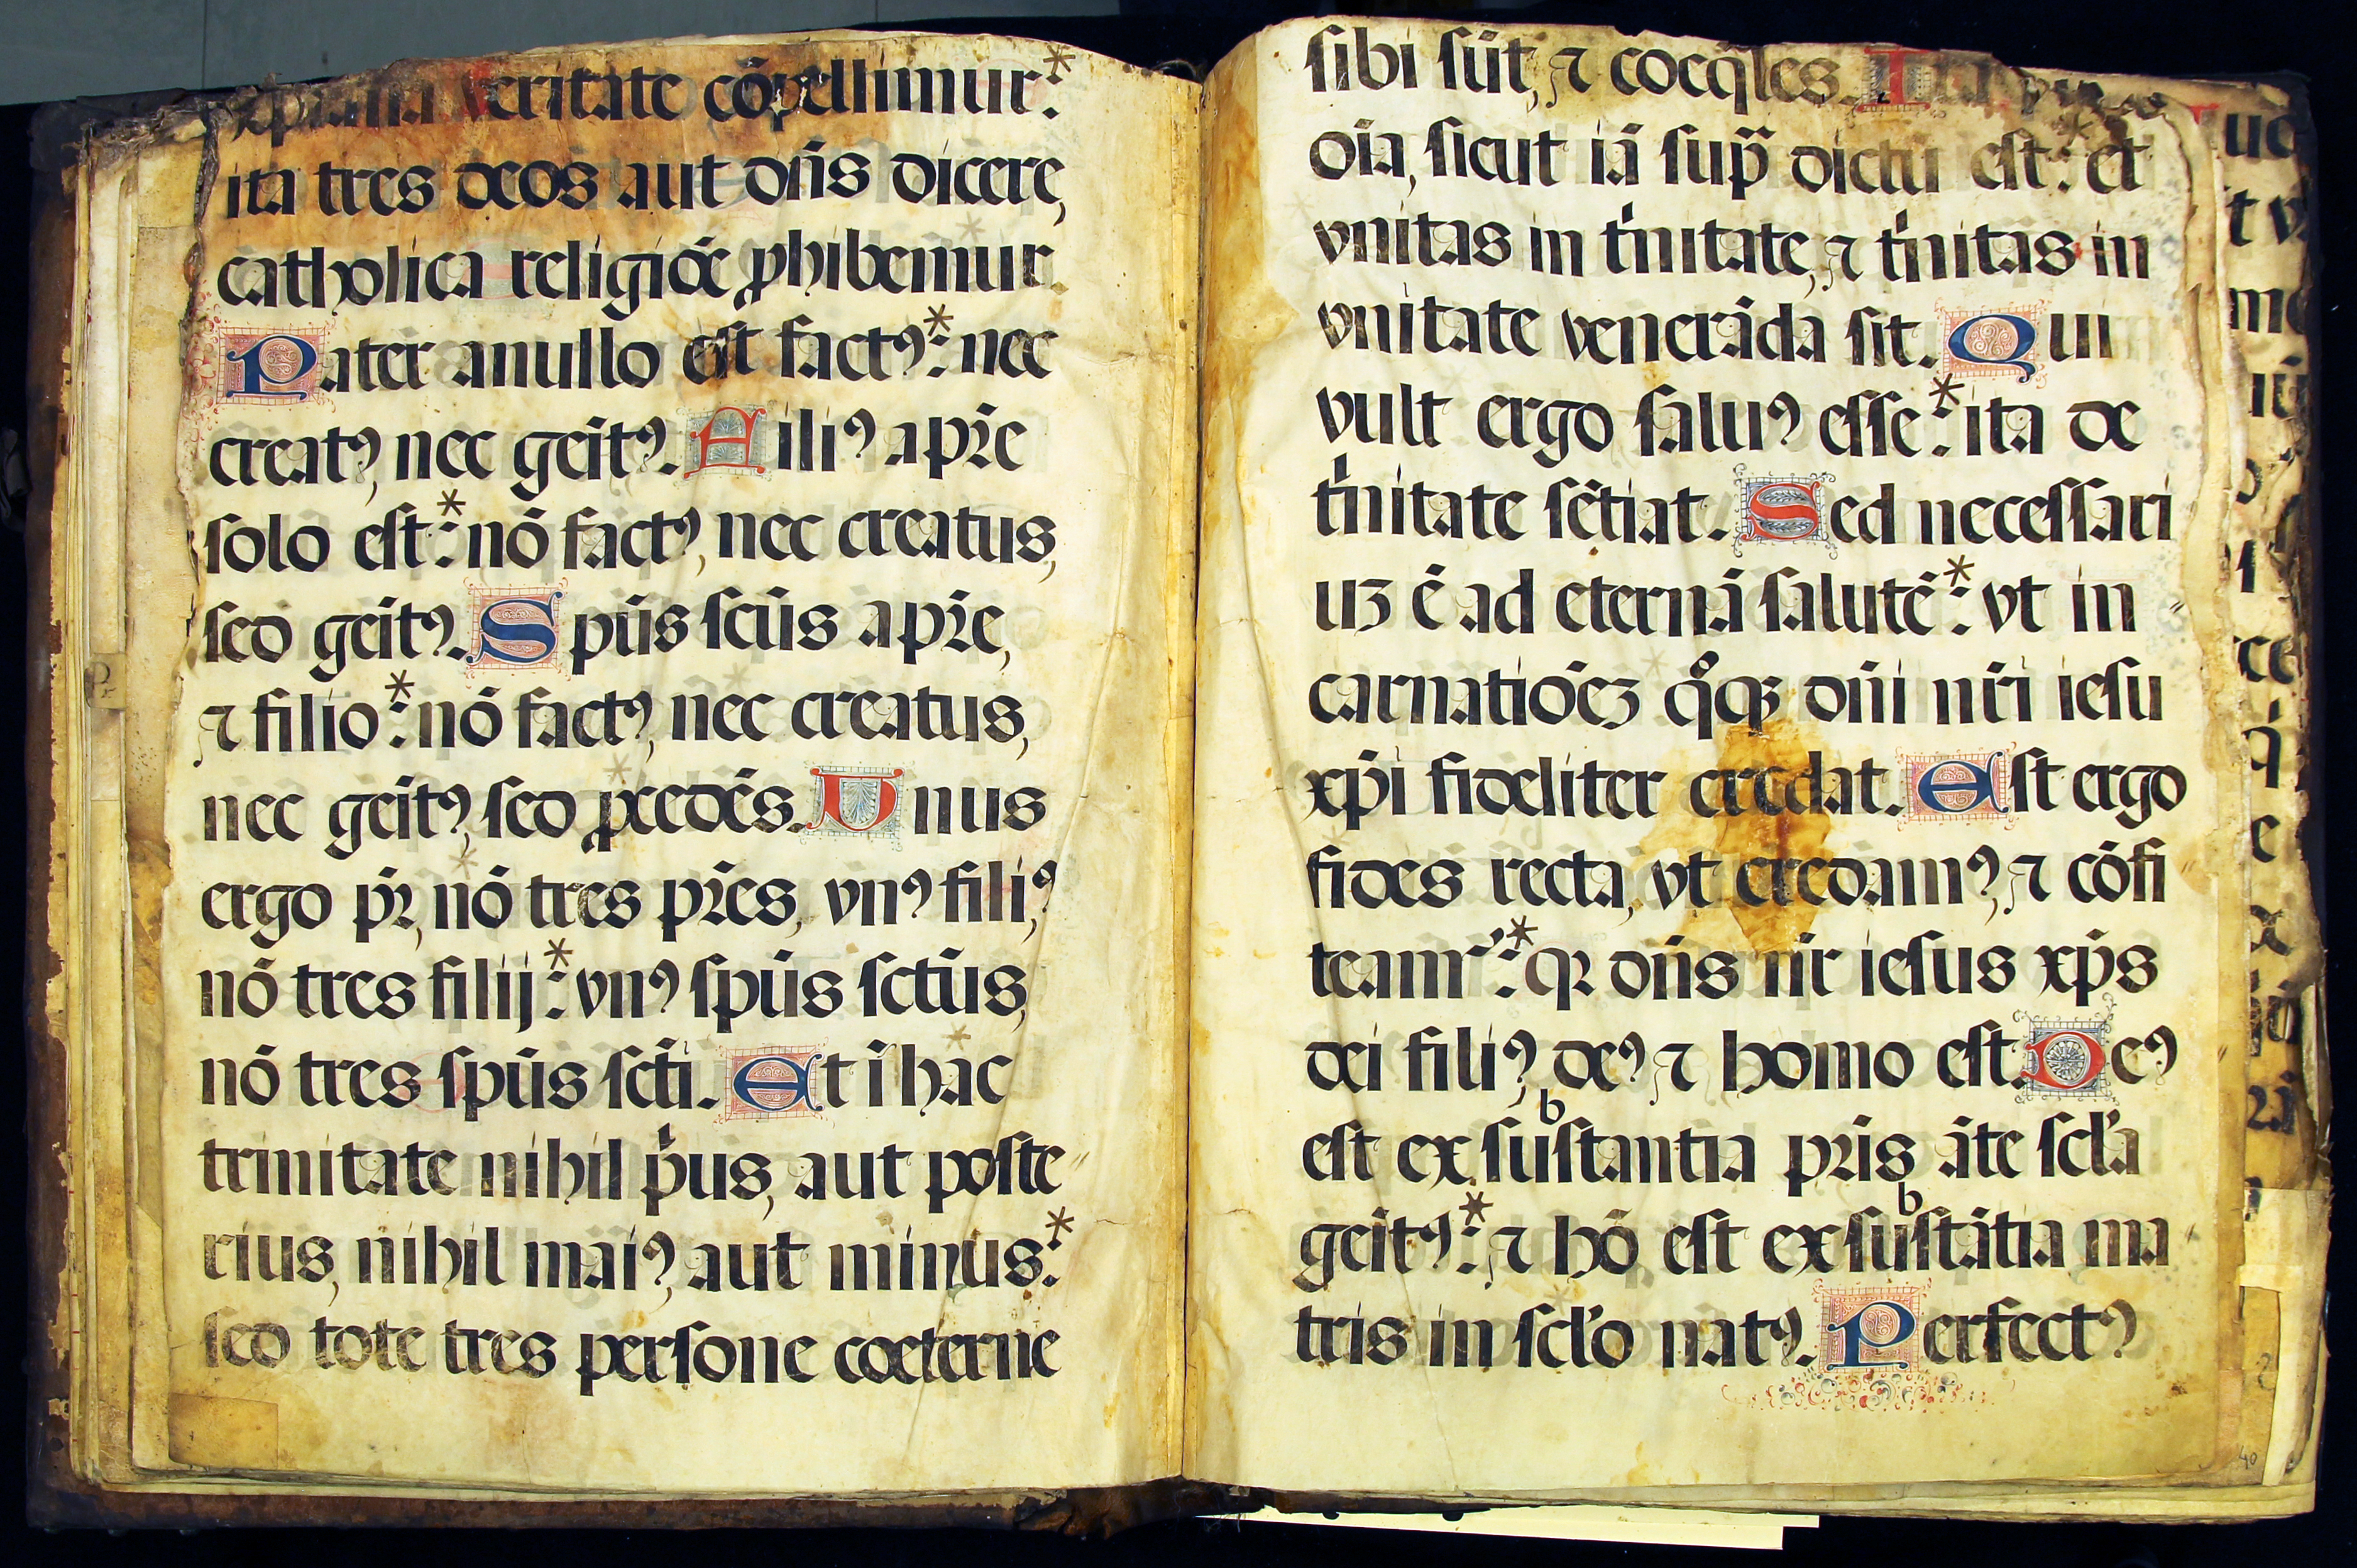 xpiana veritate cōpellimur:
ita tres deos aut dn̄s dicere,
catholica religiōe ꝓhibemur.
Pater anullo est factꝰ: nec
creatꝰ, nec geītꝰ. Filiꝰ a pr̄e
solo est: nō factꝰ, nec creatus,
sed geītꝰ. Spūs scūs a pr̄e,
⁊ filio: nō factꝰ, nec creatus,
nec geītꝰ, sed ꝓcedēs. Unus
ergo pr̄, nō tres pr̄es, vnꝰ filiꝰ,
nō tres filij: vnꝰ spūs sctūs,
nō tres spūs scti̅. Et ī hac
trinitate nihil pͥus, aut poste
rius, nihil maiꝰ, aut minus:
sed tote tres persone coeterne
sibi sūt, ⁊ coeq̄les. Ita
oīa, sicut iā sup̄ dictū est: et
vnitas in tͥnitate, ⁊ tͥnitas in
vnitate venerāda sit. Qui
vult ergo saluꝰ esse: ita de
tͥnitate sētiat. Sed necessari
uꝫ ē ad eternā salutē: vt in
carnatiōeꝫ qͦqꝫ dn̄i nr̄i iesu
xp̄i fideliter credat. Est ergo
fides recta, vt credamꝰ, ⁊ cōfi
teamr̓: qꝛ dn̄s nr̄ iesus xp̄s
dei filiꝰ, deꝰ ⁊ homo est. Deꝰ
est ex substantia pr̄is āte scl̓a
geītꝰ: ⁊ hō est ex substātia ma
tris in scl̓o natꝰ. Perfectꝰ
40